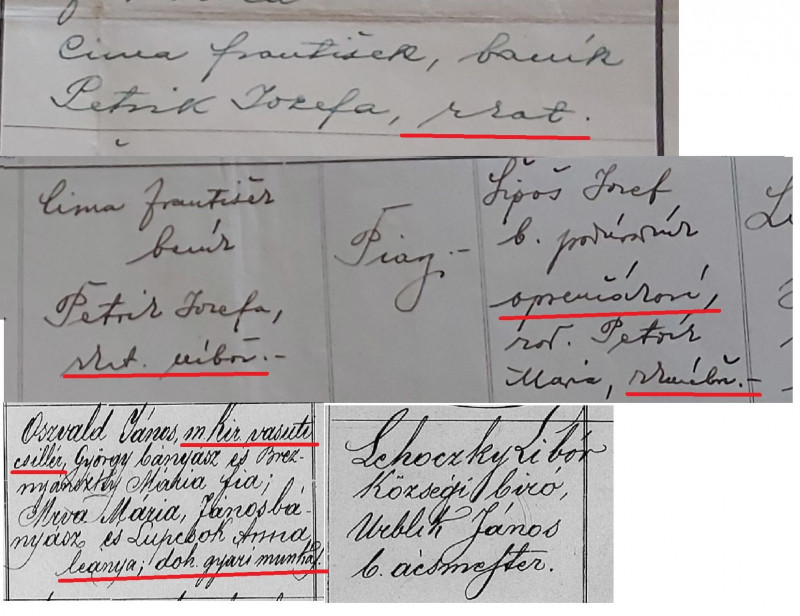 Cima František, baník
Petrik Jozefa, rkat.
Cima František
baník
Petrik Jozefa,
rkat. nábož.-
Piarg.-
Šipoš Jozef
b. podúradník
rod. Petrik
Maria,
Oszvald János, m. kir. vasuti
csillér, György bányász és Brez-
nyánszky Mária fia;
Mrva Mária, János bá-
nyász és Lupcsok Anna
leánya; doh. gyári munkás
Lehoczky Libór
községi biró,
Urblik János
b. ácsmester.